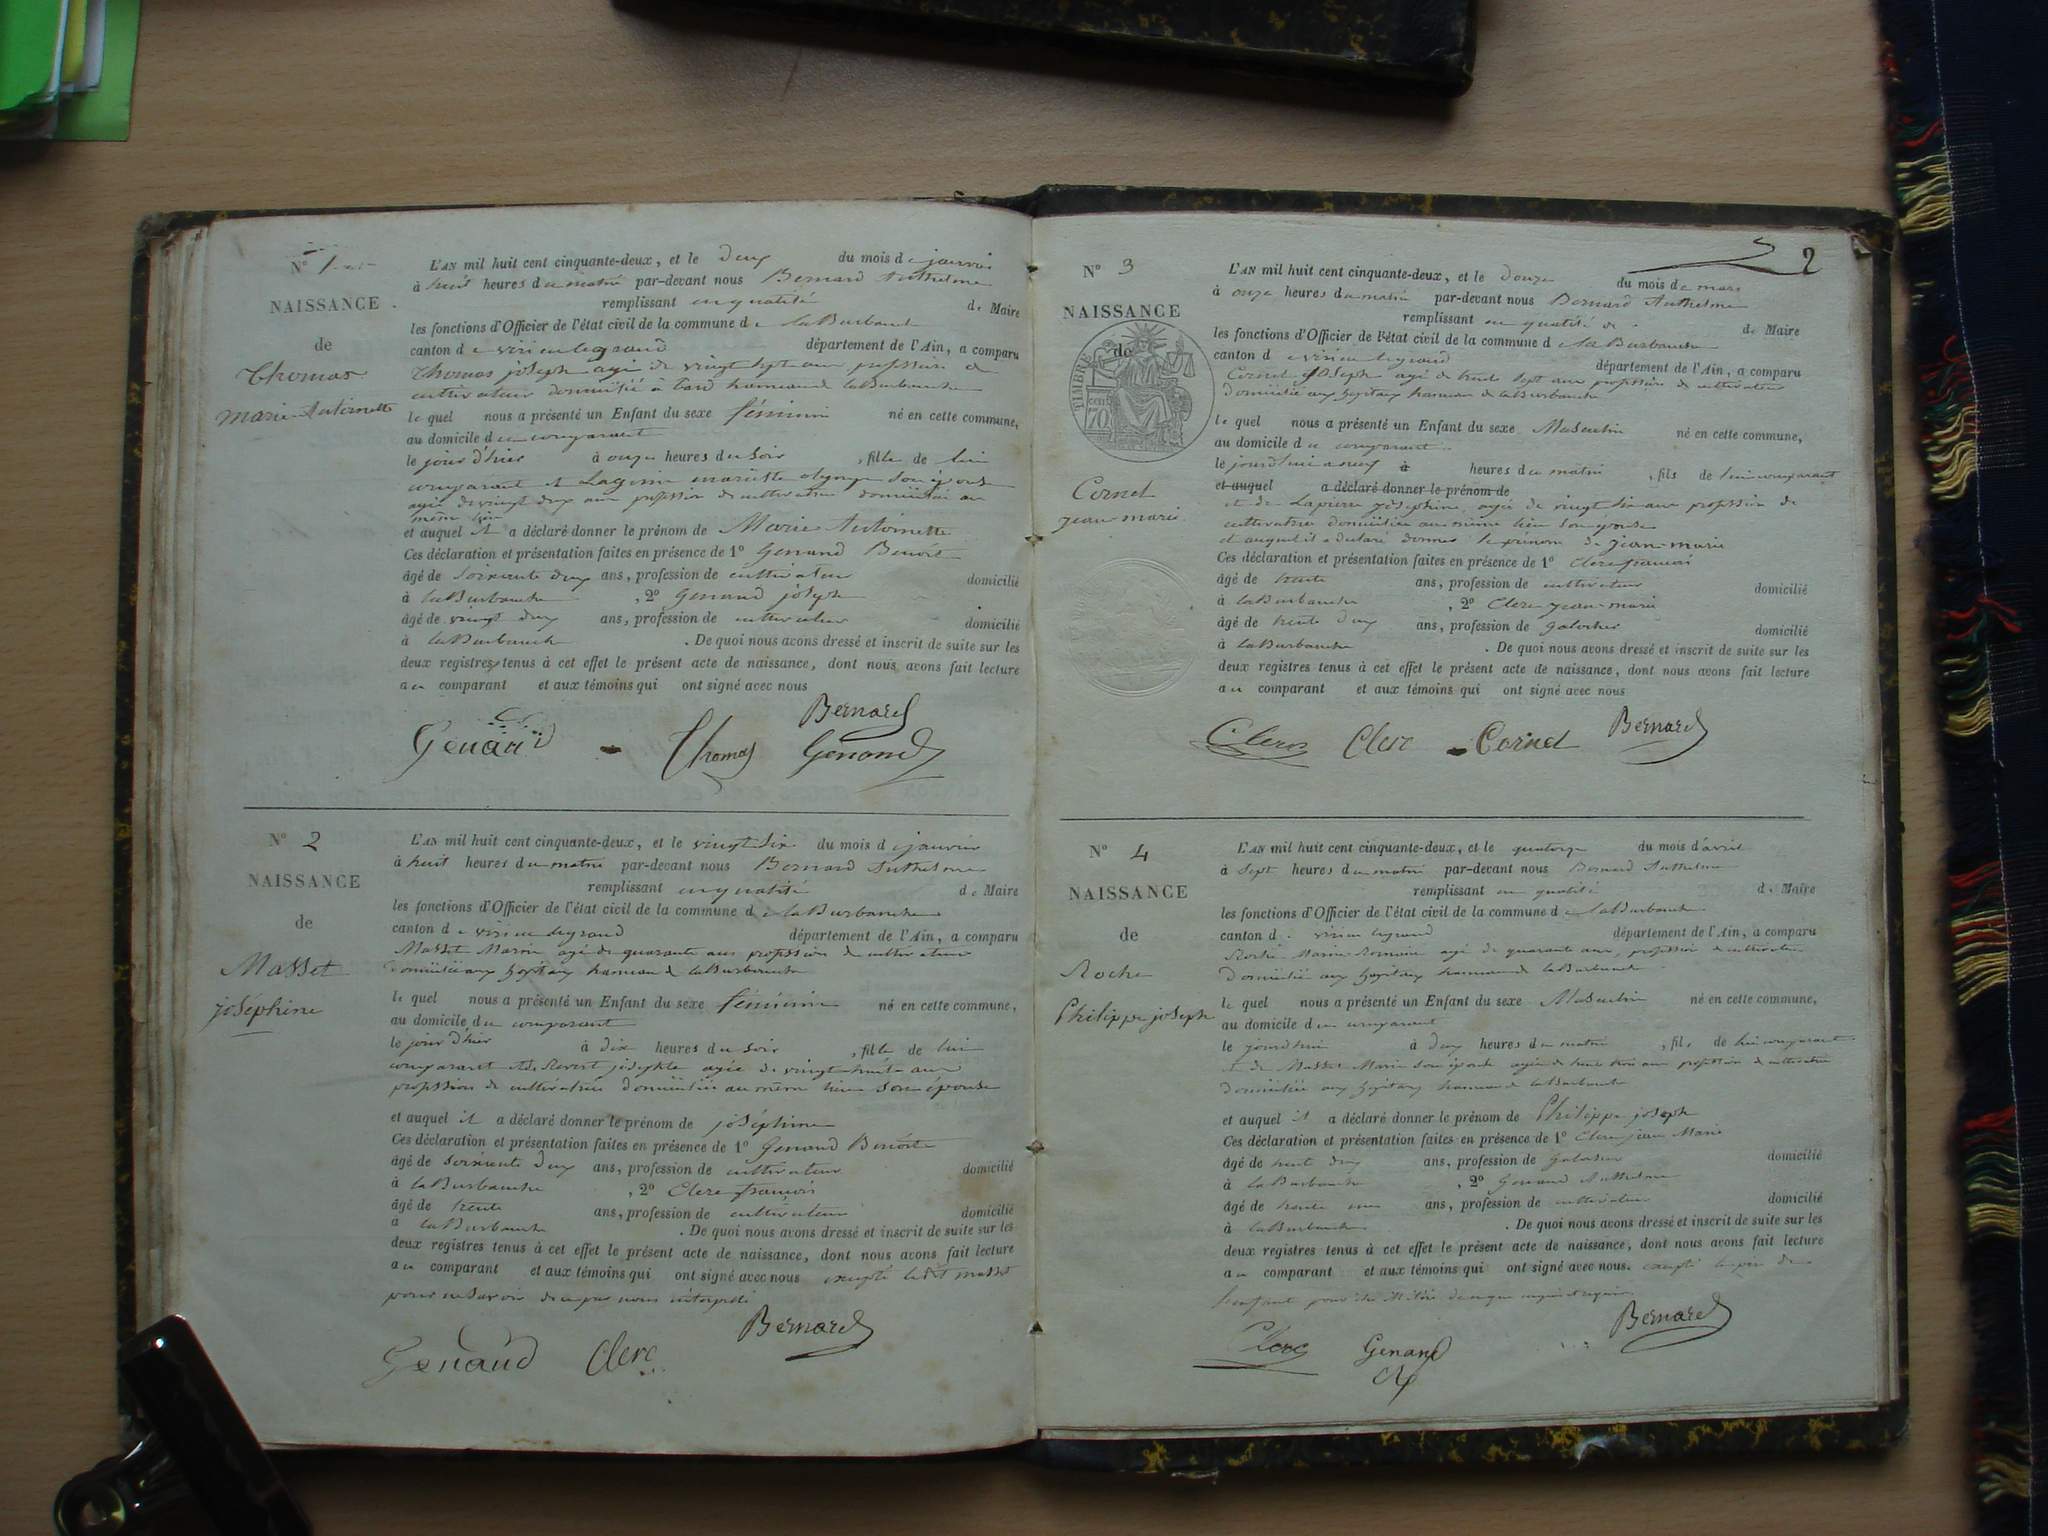 N° 1
NAISSANCE
de
Thomas
Marie Antoinette
L'AN mil huit cent cinquante-deux, et le deux du mois de janvier
à huit heures du matin par-devant nous Bernard Anthelme
remplissant en qualité de Maire
les fonctions d'Officier de l'état civil de la commune de la Burbanche
canton de virieu legrand département de l'Ain, a comparu
Thomas joseph agé de vingt sept ans profession de
cultivateur domicilié à hameau de laBurbanche
le quel nous a présenté un Enfant du sexe féminin né en cette commune,
au domicile du comparant
le jour d'hier à onze heures du soir , fille de lui
comparant et son épouse
agée de vingt deux ans profession de cultivatrice domiciliée au
même lieu
et auquel il a déclaré donner le prénom de Marie Antoinette
Ces déclaration et présentation faites en présence de 1° Genand Benoit
âgé de soixante deux ans, profession de cultivateur domicilié
à laBurbanche , 2° Genand joseph
âgé de vingt deux ans, profession de cultivateur domicilié
à laBurbanche . De quoi nous avons dressé et inscrit de suite sur les
deux registres tenus à cet effet le présent acte de naissance, dont nous avons fait lecture
au comparant et aux témoins qui ont signé avec nous
Bernard
Genand Thomas Genand
N° 2
NAISSANCE
de
Masset
joséphine
L'AN mil huit cent cinquante-deux, et le vingt six du mois de janvier
à huit heures du matin par-devant nous Bernard Anthelme
remplissant en qualité de Maire
les fonctions d'Officier de l'état civil de la commune de laBurbanche
canton de virieu legrand département de l'Ain, a comparu
Masset Marin agé de quarante ans profession de cultivateur
domicilié aux hopitaux hameau de laBurbanche
le quel nous a présenté un Enfant du sexe féminin né en cette commune,
au domicile du comparant
le jour d'hier à dix heures du soir , fille de lui
comparant et de agée de vingt huit ans
profession de cultivatrice domiciliée au même lieu son épouse
et auquel il a déclaré donner le prénom de joséphine
Ces déclaration et présentation faites en présence de 1° Genand Benoit
âgé de soixante deux ans, profession de cultivateur domicilié
à laBurbanche , 2° Clerc françois
âgé de trente ans, profession de cultivateur domicilié
à laBurbanche . De quoi nous avons dressé et inscrit de suite sur les
deux registres tenus à cet effet le présent acte de naissance, dont nous avons fait lecture
au comparant et aux témoins qui ont signé avec nous excepté ledit masset
pour ne savoir de ce par nous
Bernard
Genand Clerc
2
N° 3
NAISSANCE
de
TIMBRE
70
Cornet
jean-marie
L'AN mil huit cent cinquante-deux, et le douze du mois de mars
à onze heures du matin par-devant nous Bernard Anthelme
remplissant en qualité de Maire
les fonctions d'Officier de l'état civil de la commune de la Burbanche
canton de virieu legrand département de l'Ain, a comparu
Cornet joseph agé de trente sept ans profession de cultivateur
domicilié aux hopitaux hameau de laBurbanche
le quel nous a présenté un Enfant du sexe Masculin né en cette commune,
au domicile du comparant
le jourd'hui a neuf à heures du matin , fils de lui comparant
et auquel a déclaré donner le prénom de
et de Lapierre joséphine agée de vingt six ans profession de
cultivatrice domiciliée au même lieu son épouse
et auquel il a déclaré donner le prénom de jean-marie
Ces déclaration et présentation faites en présence de 1° Clerc françois
âgé de trente ans, profession de cultivateur domicilié
à laBurbanche , 2° Clerc jean-marie
âgé de trente deux ans, profession de galochier domicilié
à laBurbanche . De quoi nous avons dressé et inscrit de suite sur les
deux registres tenus à cet effet le présent acte de naissance, dont nous avons fait lecture
au comparant et aux témoins qui ont signé avec nous
Clerc Clerc Cornet Bernard
N° 4
NAISSANCE
de
Roche
Philippe joseph
L'AN mil huit cent cinquante-deux, et le quatorze du mois d'avril
à sept heures du matin par-devant nous Bernard Anthelme
remplissant en qualité de Maire
les fonctions d'Officier de l'état civil de la commune de laBurbanche
canton d virieu legrand département de l'Ain, a comparu
Roche Marin Romain agé de quarante ans, profession de cultivateur
domicilié aux hopitaux hameau de laBurbanche
le quel nous a présenté un Enfant du sexe Masculin né en cette commune,
au domicile du comparant
le jourdhui à deux heures du matin , fils de lui comparant
et de Masset Marie son épouse agée de trente trois ans profession de cultivatrice
domiciliée aux hopitaux hameau de laBurbanche
et auquel il a déclaré donner le prénom de Philippe joseph
Ces déclaration et présentation faites en présence de 1° Clerc jean Marie
âgé de trente deux ans, profession de domicilié
à laBurbanche , 2° Genand Anthelme
âgé de trente ans, profession de cultivateur domicilié
à laBurbanche . De quoi nous avons dressé et inscrit de suite sur les
deux registres tenus à cet effet le présent acte de naissance, dont nous avons fait lecture
au comparant et aux témoins qui ont signé avec nous. excepté le père de
l'enfant pour être illitéré de ce que requis
Bernard
Clerc Genand